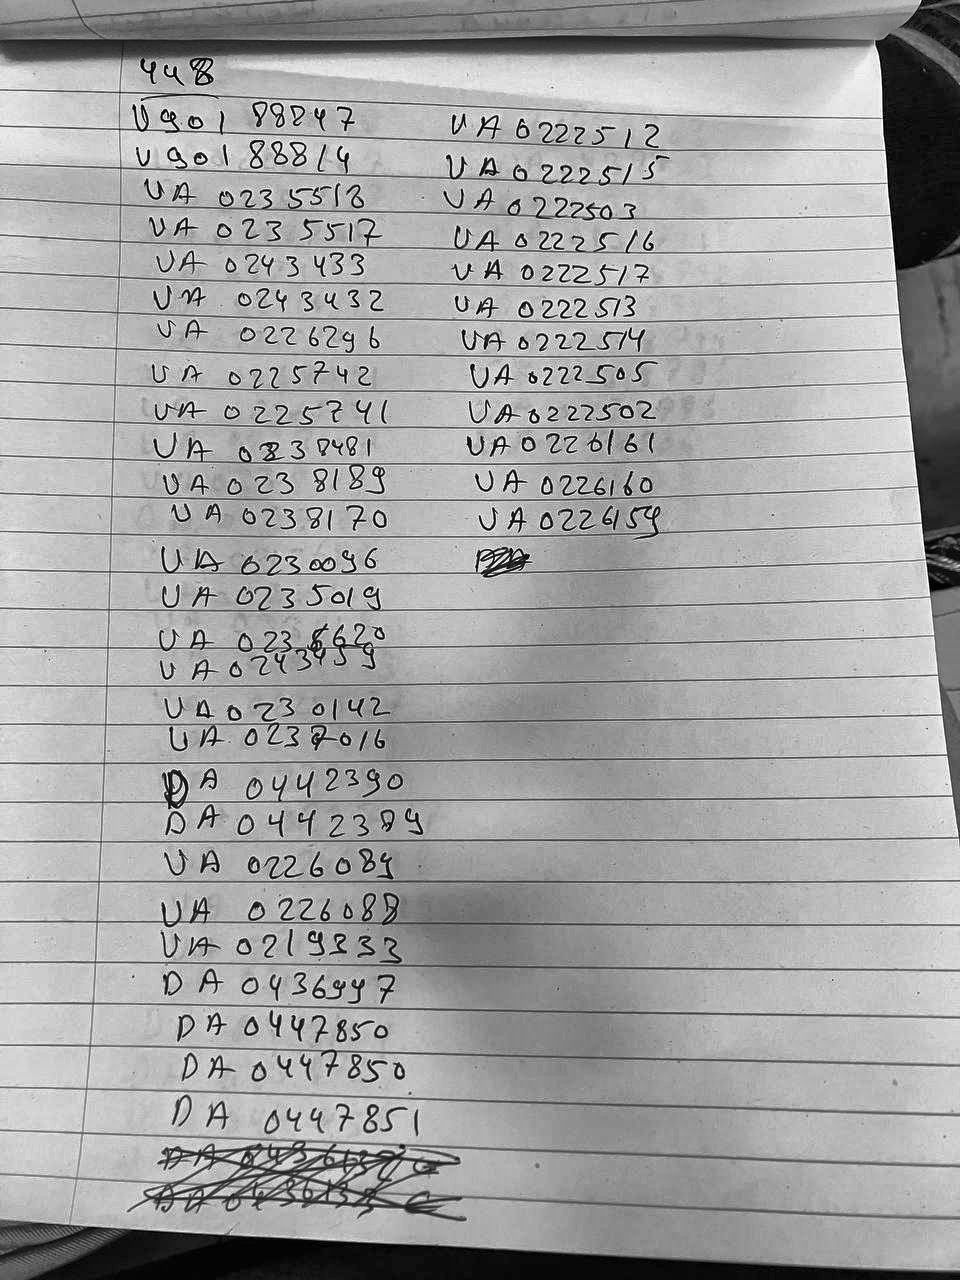 448
Ug01 88847
Ug01 88814
UA 0235518
UA 0235517
UA 0243433
UA 0243432
UA 0226296
UA 0225742
UA 0225741
UA 0238481
UA 0238189
UA 0238170
UA 0230096
UA 0235019
UA 0235620
UA 0243459
UA 0230142
UA 0237016
DA 0442390
DA 0442389
UA 0226089
UA 0226088
UA 0219333
DA 0436997
DA 0447850
DA 0447850
DA 0447851
UA 0222512
UA 0222515
UA 0222503
UA 0222516
UA 0222517
UA 0222513
UA 0222514
UA 0222505
UA 0222502
UA 0226161
UA 0226160
UA 0226159